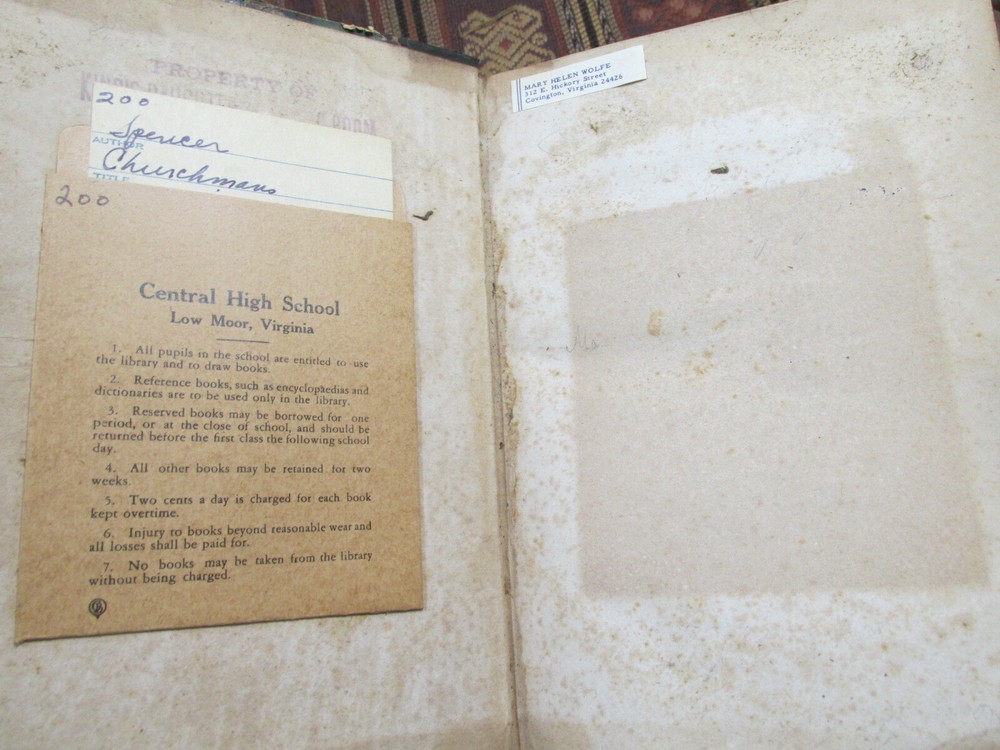 PROPERTY
200
Spencer
AUTHOR
Churchmans
TITLE
200
Central High School
Low Moor, Virginia
1. All pupils in the school are entitled to use
the library and to draw books.
2. Reference books, such as encyclopaedias and
dictionaries are to be used only in the library.
3. Reserved books may be borrowed for one
period, or at the close of school, and should be
returned before the first class the following school
day.
4. All other books may be retained for two
weeks.
5. Two cents a day is charged for each book
kept overtime.
6. Injury to books beyond reasonable wear and
all losses shall be paid for.
7. No books may be taken from the library
without being charged.
MARY HELEN WOLFE
512 E. Hickory Street
Covington, Virginia 24426